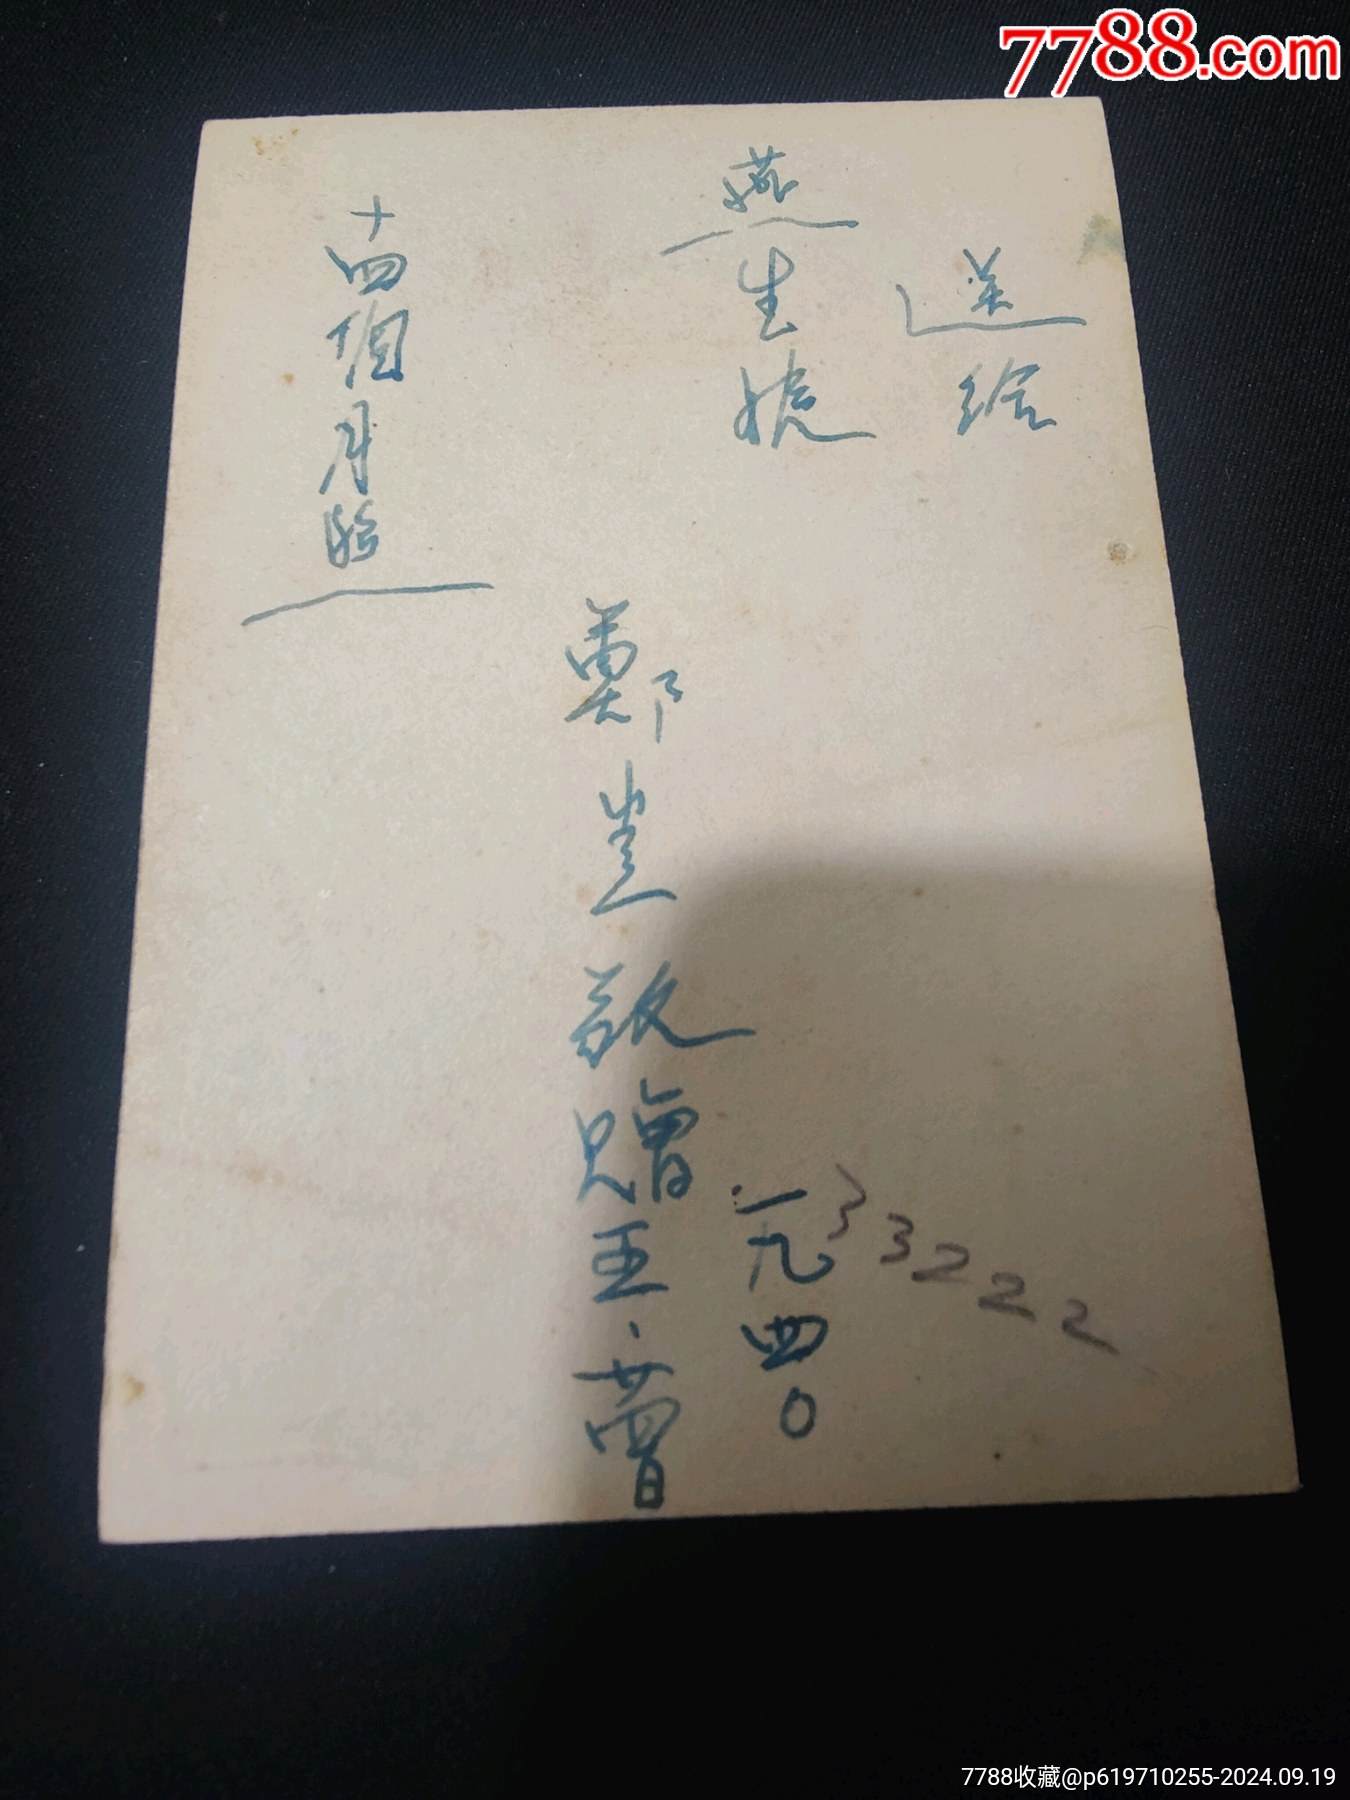 7788.com
送給
燕生
鄭 敬贈
一九四0
五、廿四日
十四個月照
33222
7788收藏@p619710255-2024.09.19